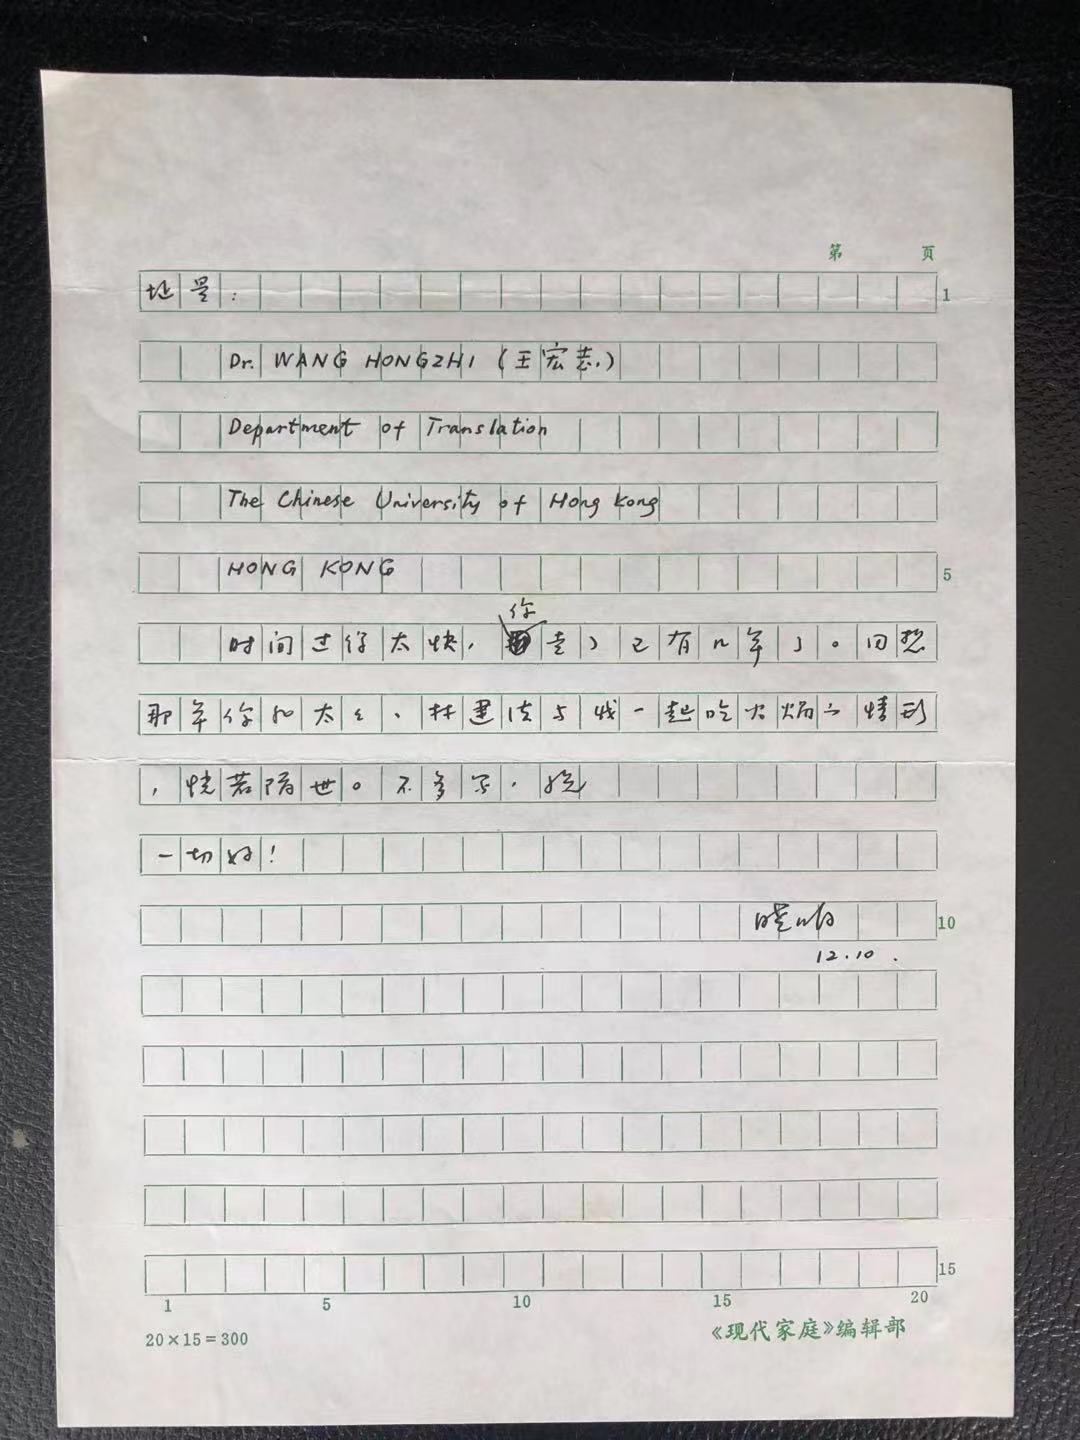 第 页
地是：
1
Dr. WANG HONGZHI (王宏志)
Department of Translation
The Chinese University of Hong Kong
HONG KONG
5
时间过得太快，你走了已有几年了。回想
那年你和太太、林建法与我一起吃火锅的情形
，恍若隔世。不多写，祝
一切好！
10
12.10.
15
1 5 10 15 20
20×15=300
《现代家庭》编辑部